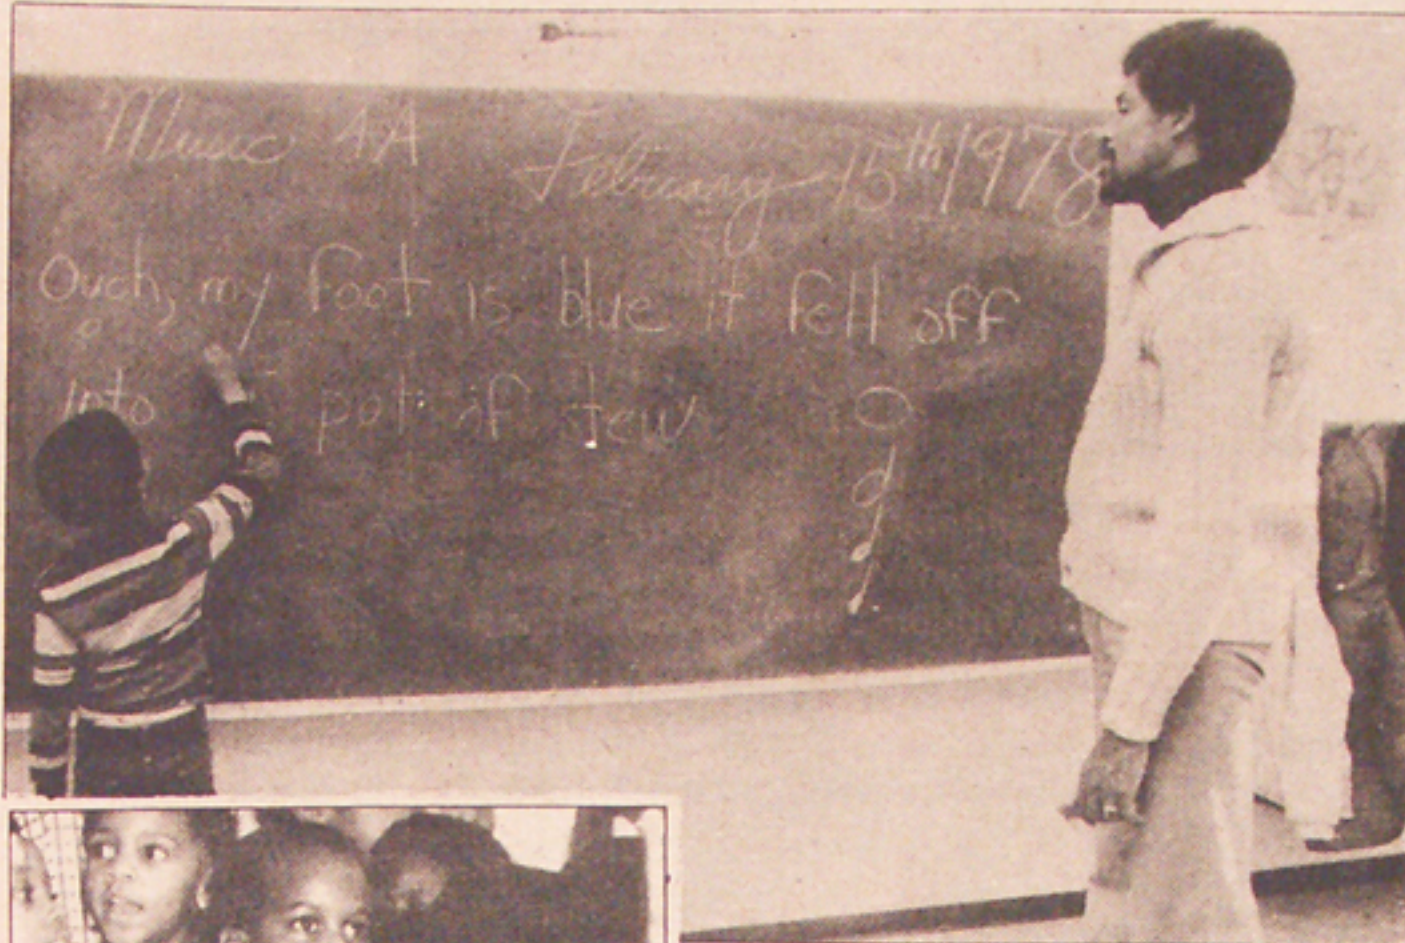 Music 4A
February 15th 1978
Ouch, my foot is blue it fell off
into pot of stew